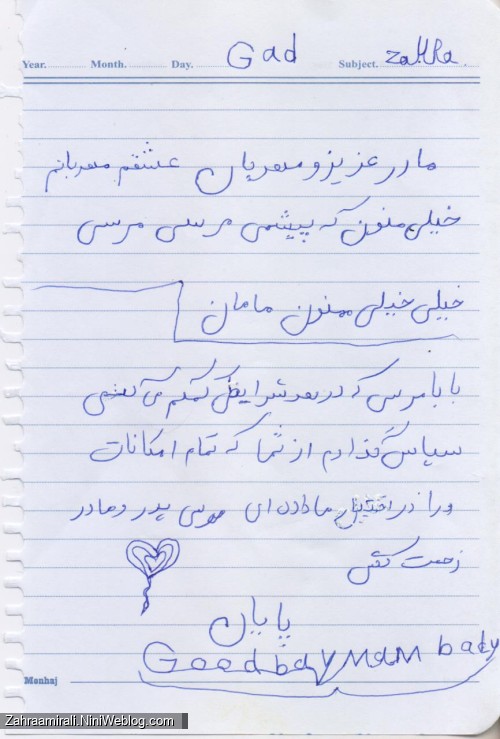 Gad
zaHRa
Year. Month. Day. Subject.
مادر عزیز و مهربان عشقم مهربانم
خیلی ممنون که پیشمی مرسی مرسی
خیلی خیلی ممنون مامان
بابا مرسی که در هر شرایطی کمکم می کنی
سپاس گذارم از شما که تمام امکانات
و را در اختیار ما داده ای مرسی پدر و مادر
زحمت کش
پایان
Goodbay MaM bady
Menhaj
Zahraamirali.NiniWeblog.com